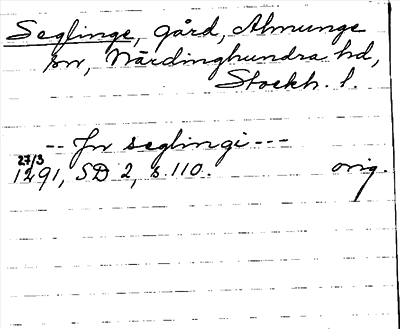 Seglinge, gård, Almunge
sn, Närdinghundra hd,
Stockh. l.
-- Jn seglingi ---
27/3
1291, SD 2, s. 110. orig.